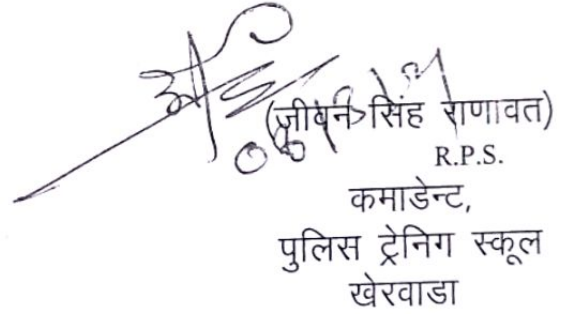 (जीवन सिंह राणावत)
R.P.S.
कमाडेन्ट,
पुलिस ट्रेनिग स्कूल
खेरवाडा